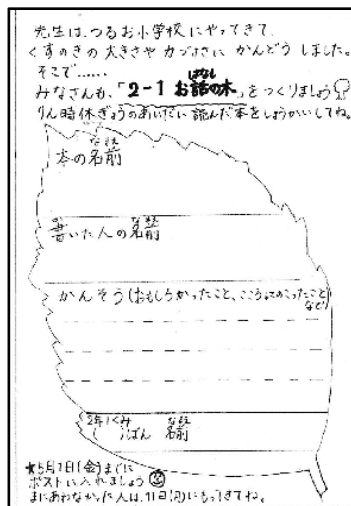 先生は、つるお小学校にやってきて、
くすのきの大きさや力づよさにかんどうしました。
そこで……
みなさんも、「2-1 お話の木」をつくりましょう
りん時休ぎょうのあいだに読んだ本をしょうかいしてね。
本の名前
書いた人の名前
かんそう(おもしろかったこと、こころにのこったこと
など)
2年1くみ
ばん 名前
★5月7日(金)までに
ポストに入れましょう
まにあわなかった人は、11日(月)にもってきてね。